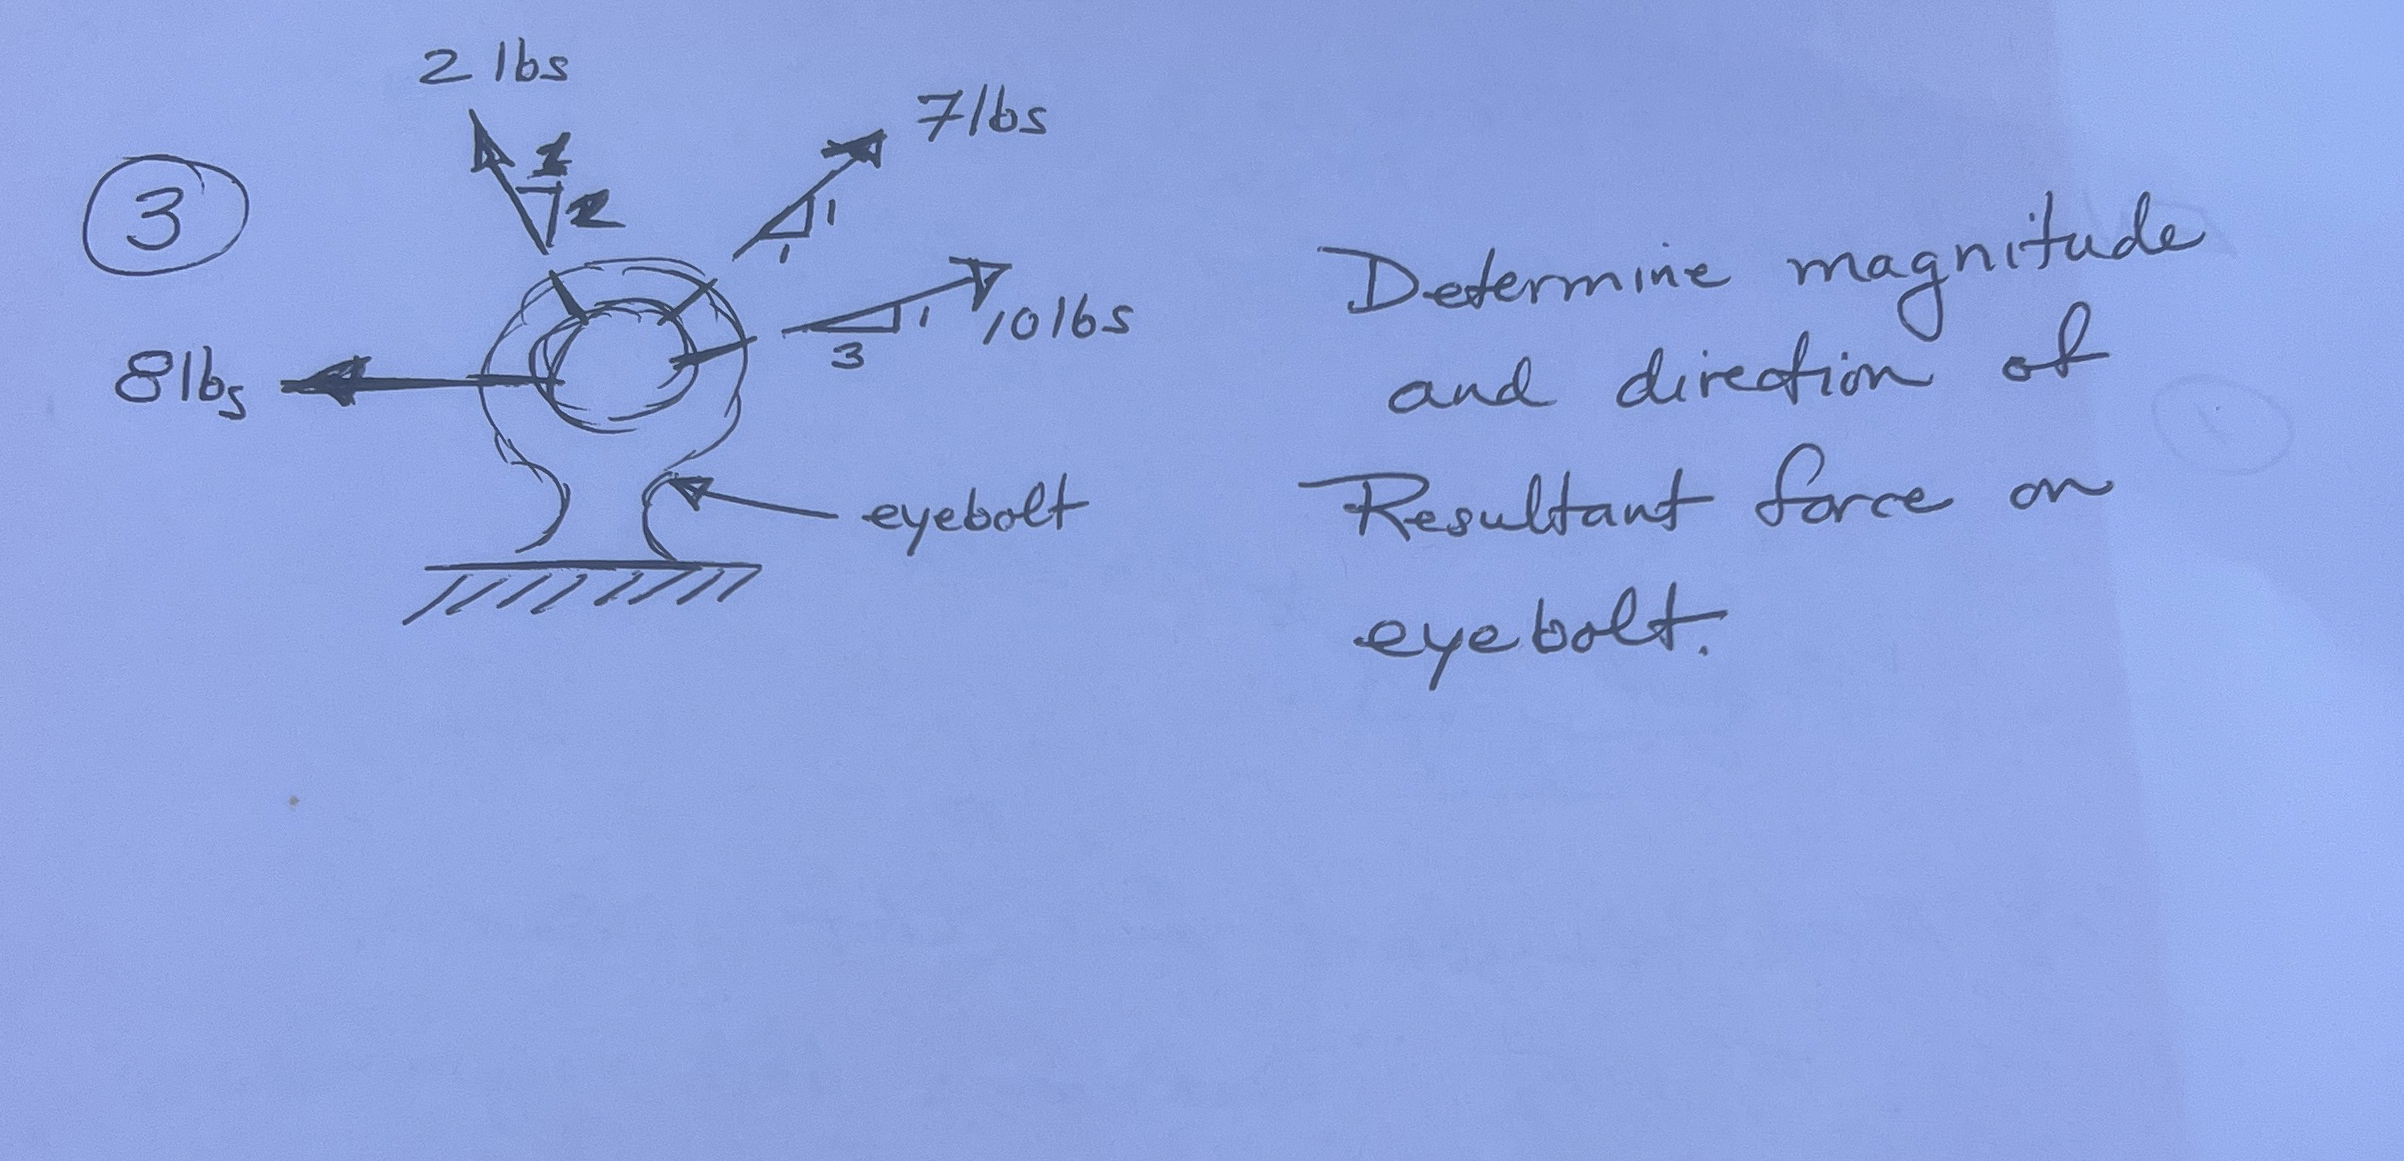 2 lbs
7 lbs
3
1
2
1
1
1
3
10 lbs
8 lbs
eyebolt
Determine magnitude
and direction of
Resultant force on
eyebolt.